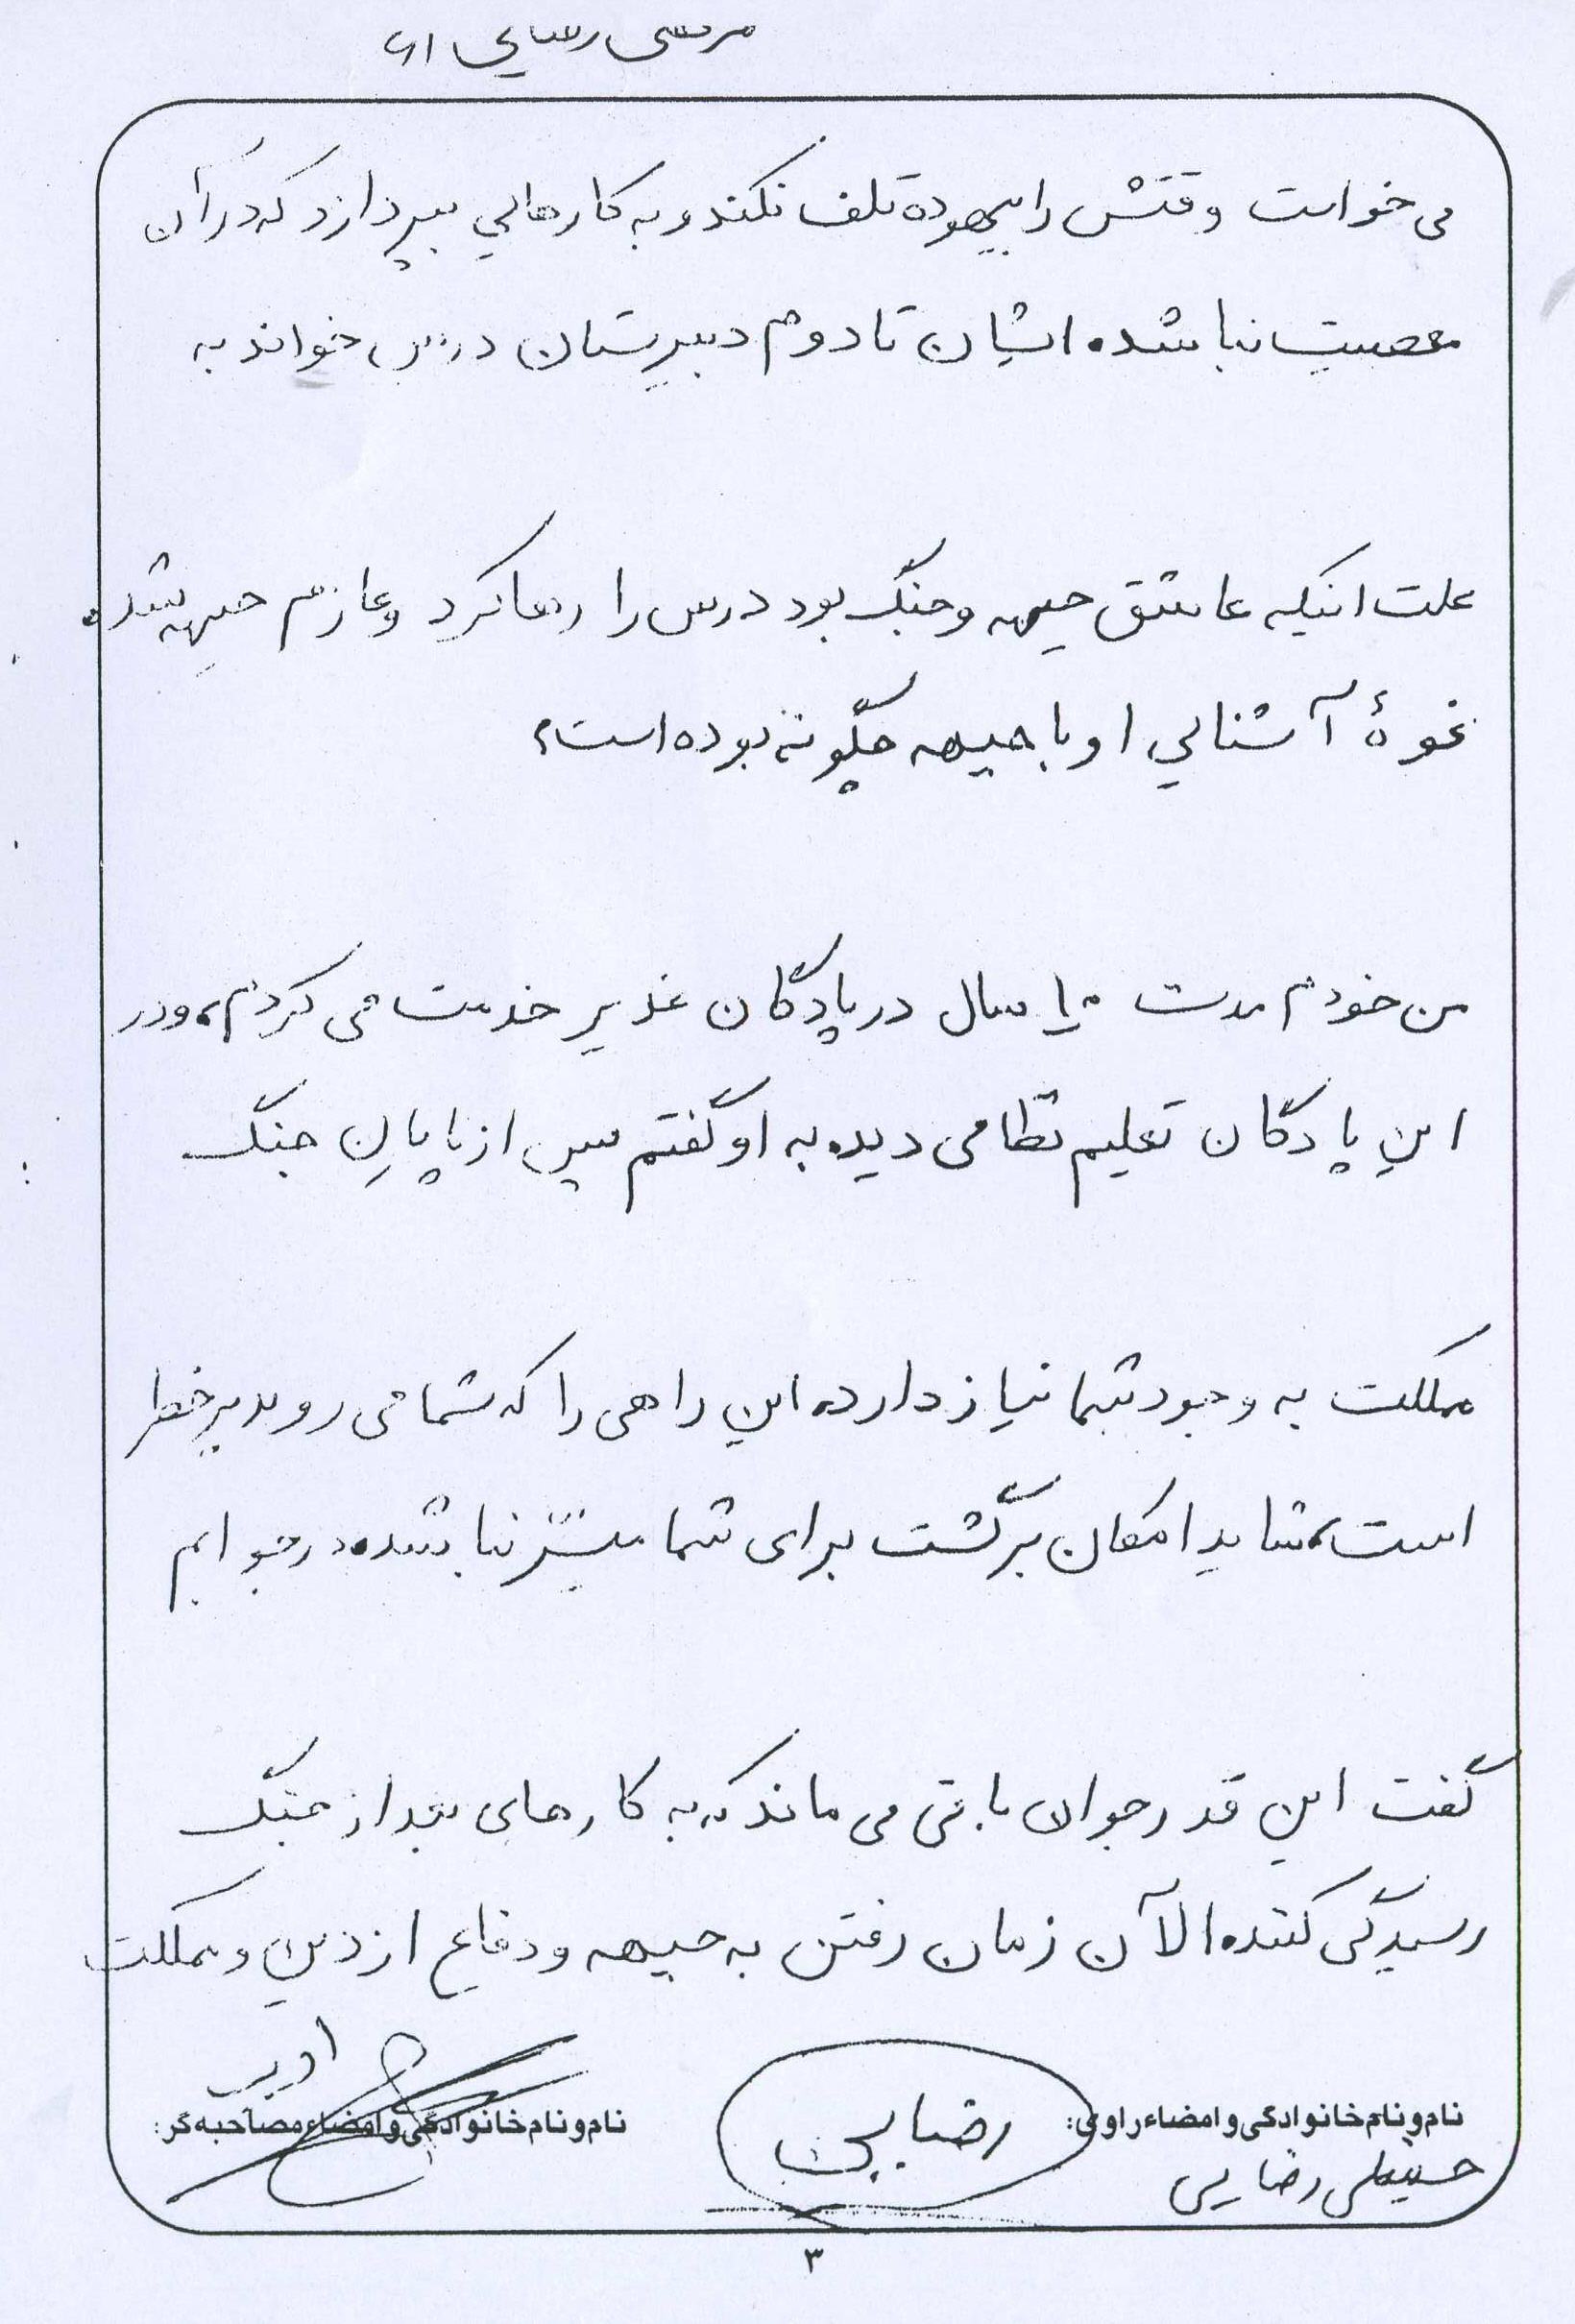 می خواست وقتش را بیهوده تلف نکند و به کارهایی بپردازد که در آن
معصیت نباشد. ایشان تا دوم دبیرستان درس خواند به
علت اینکه عاشق جبهه و جنگ بود درس را رها کرد و عازم جبهه شد.
نحوهٔ آشنایی او با جبهه چگونه بوده است؟
من خودم مدت ۱۰ سال در پادگان غدیر خدمت می کردم، و در
این پادگان تعلیم نظامی دید. به او گفتم پس از پایان جنگ
مملکت به وجود شما نیاز دارد. این راهی را که شما می روید پر خطر
است، شاید امکان برگشت برای شما میسّر نباشد. در جوابم
گفت این قدر جوان باقی می ماند که به کارهای بعد از جنگ
رسیدگی کنند. الآن زمان رفتن به جبهه و دفاع از دین و مملکت
نام و نام خانوادگی و امضاء راوی: رضایی نام و نام خانوادگی و امضاء مصاحبه گر:
حسینعلی رضایی
۳